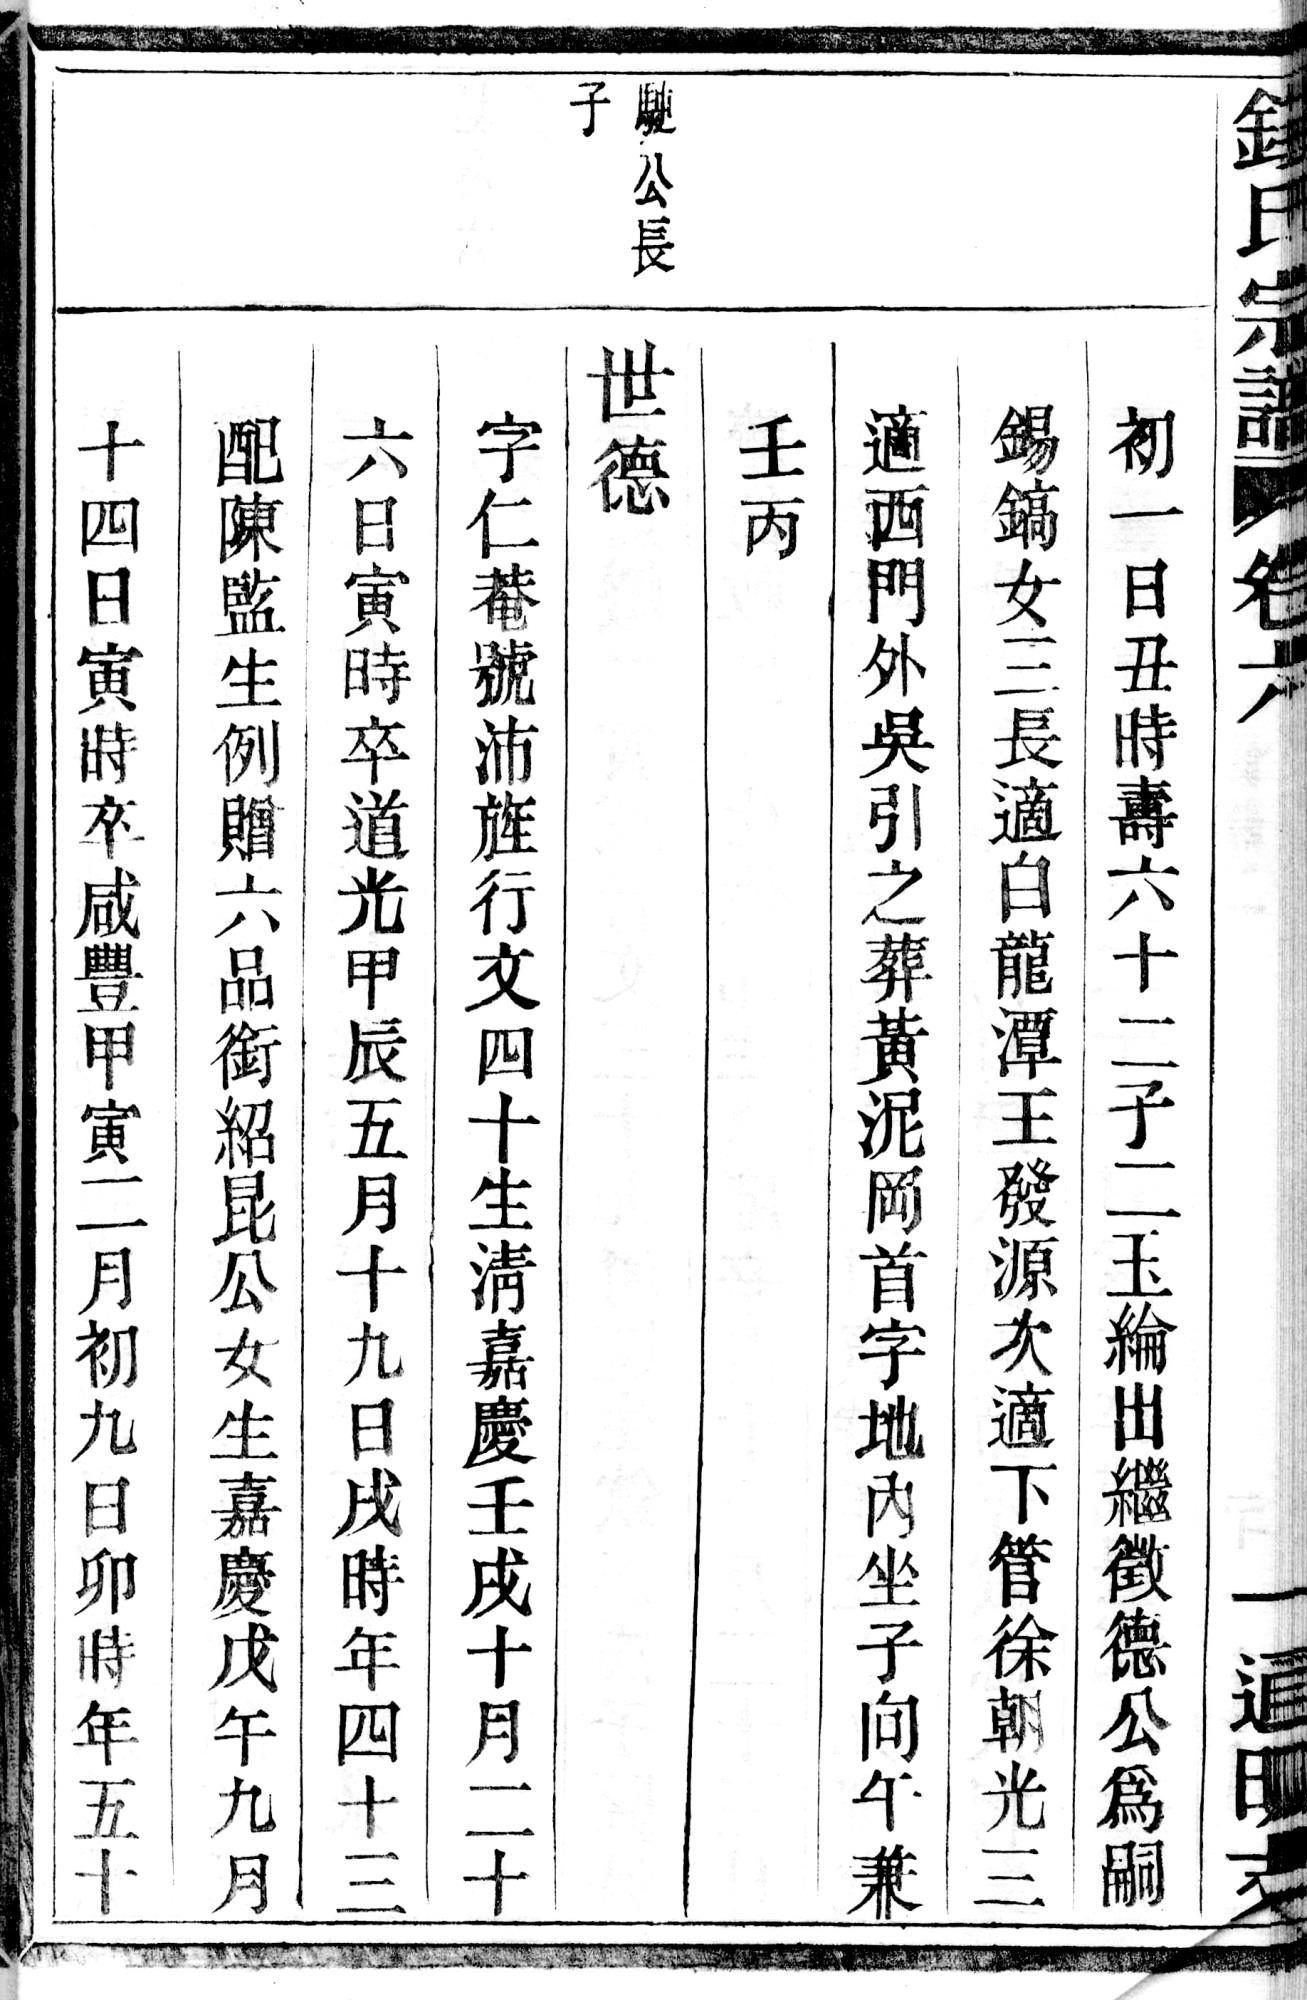 氏宗譜 卷六 一
初一日丑時壽六十二子二玉綸出繼徵德公爲嗣
錫鎬女三長適白龍潭王發源次適下管徐朝光三
適西門外吳引之葬黃泥岡首字地內坐子向午兼
壬丙
公長
子
世德
字仁菴號沛旌行文四十生淸嘉慶壬戌十月二十
六日寅時卒道光甲辰五月十九日戌時年四十三
配陳監生例贈六品銜紹昆公女生嘉慶戊午九月
十四日寅時卒咸豐甲寅二月初九日卯時年五十